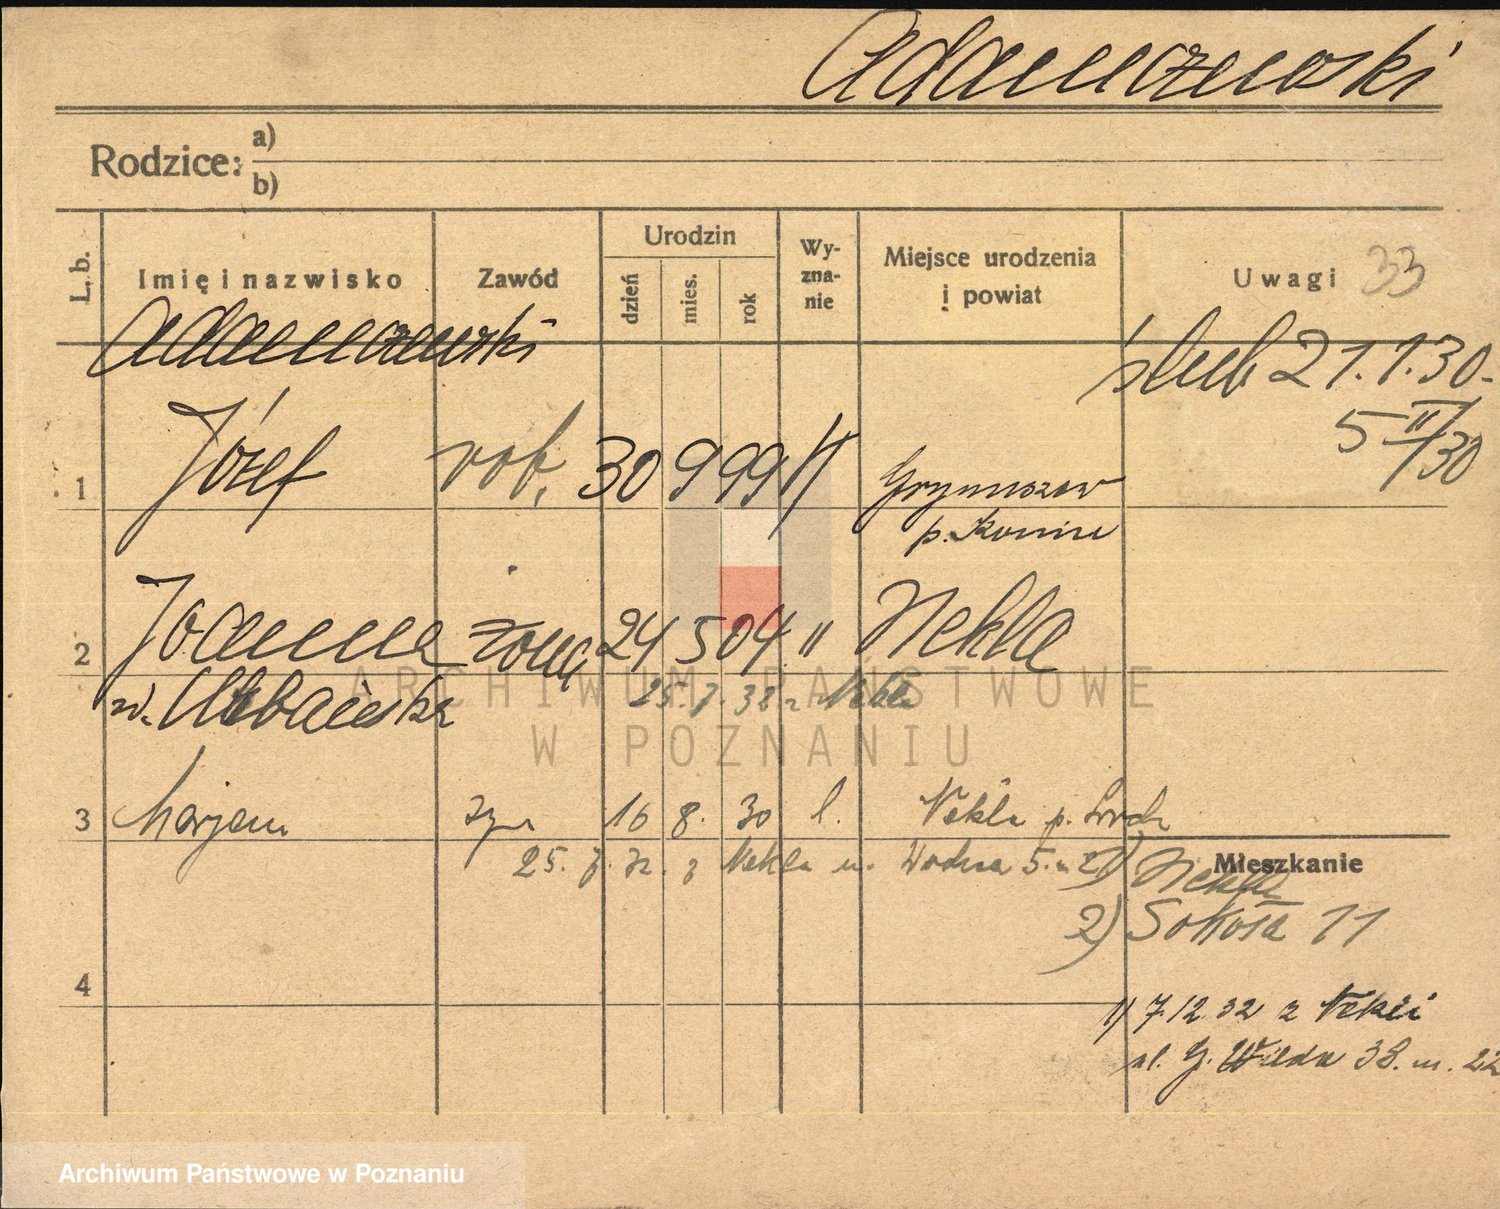 Adamczewski
Rodzice: a)
b)
L. b. Imię i nazwisko Zawód Urodzin dzień mies. rok Wyznanie Miejsce urodzenia i powiat Uwagi 33
Adamczewski
ślub 21.1.30.
5 II/30
1 Józef rob. 30 9 99
p. Konin
2 Joanna żona 24 5 04 " Nekla
25. 7. 32 z Nekla
3 Marjan syn 16 8. 30 Nekla p. Środa
25. 7. 32. z Nekla u. Wodna 5. m 2
Mieszkanie
1) Nekla
2) Sokoła 11
4
1) 7.12.32 z Nekli
ul. G. Wilda 38. m. 22
ARCHIWUM PAŃSTWOWE
W POZNANIU
Archiwum Państwowe w Poznaniu